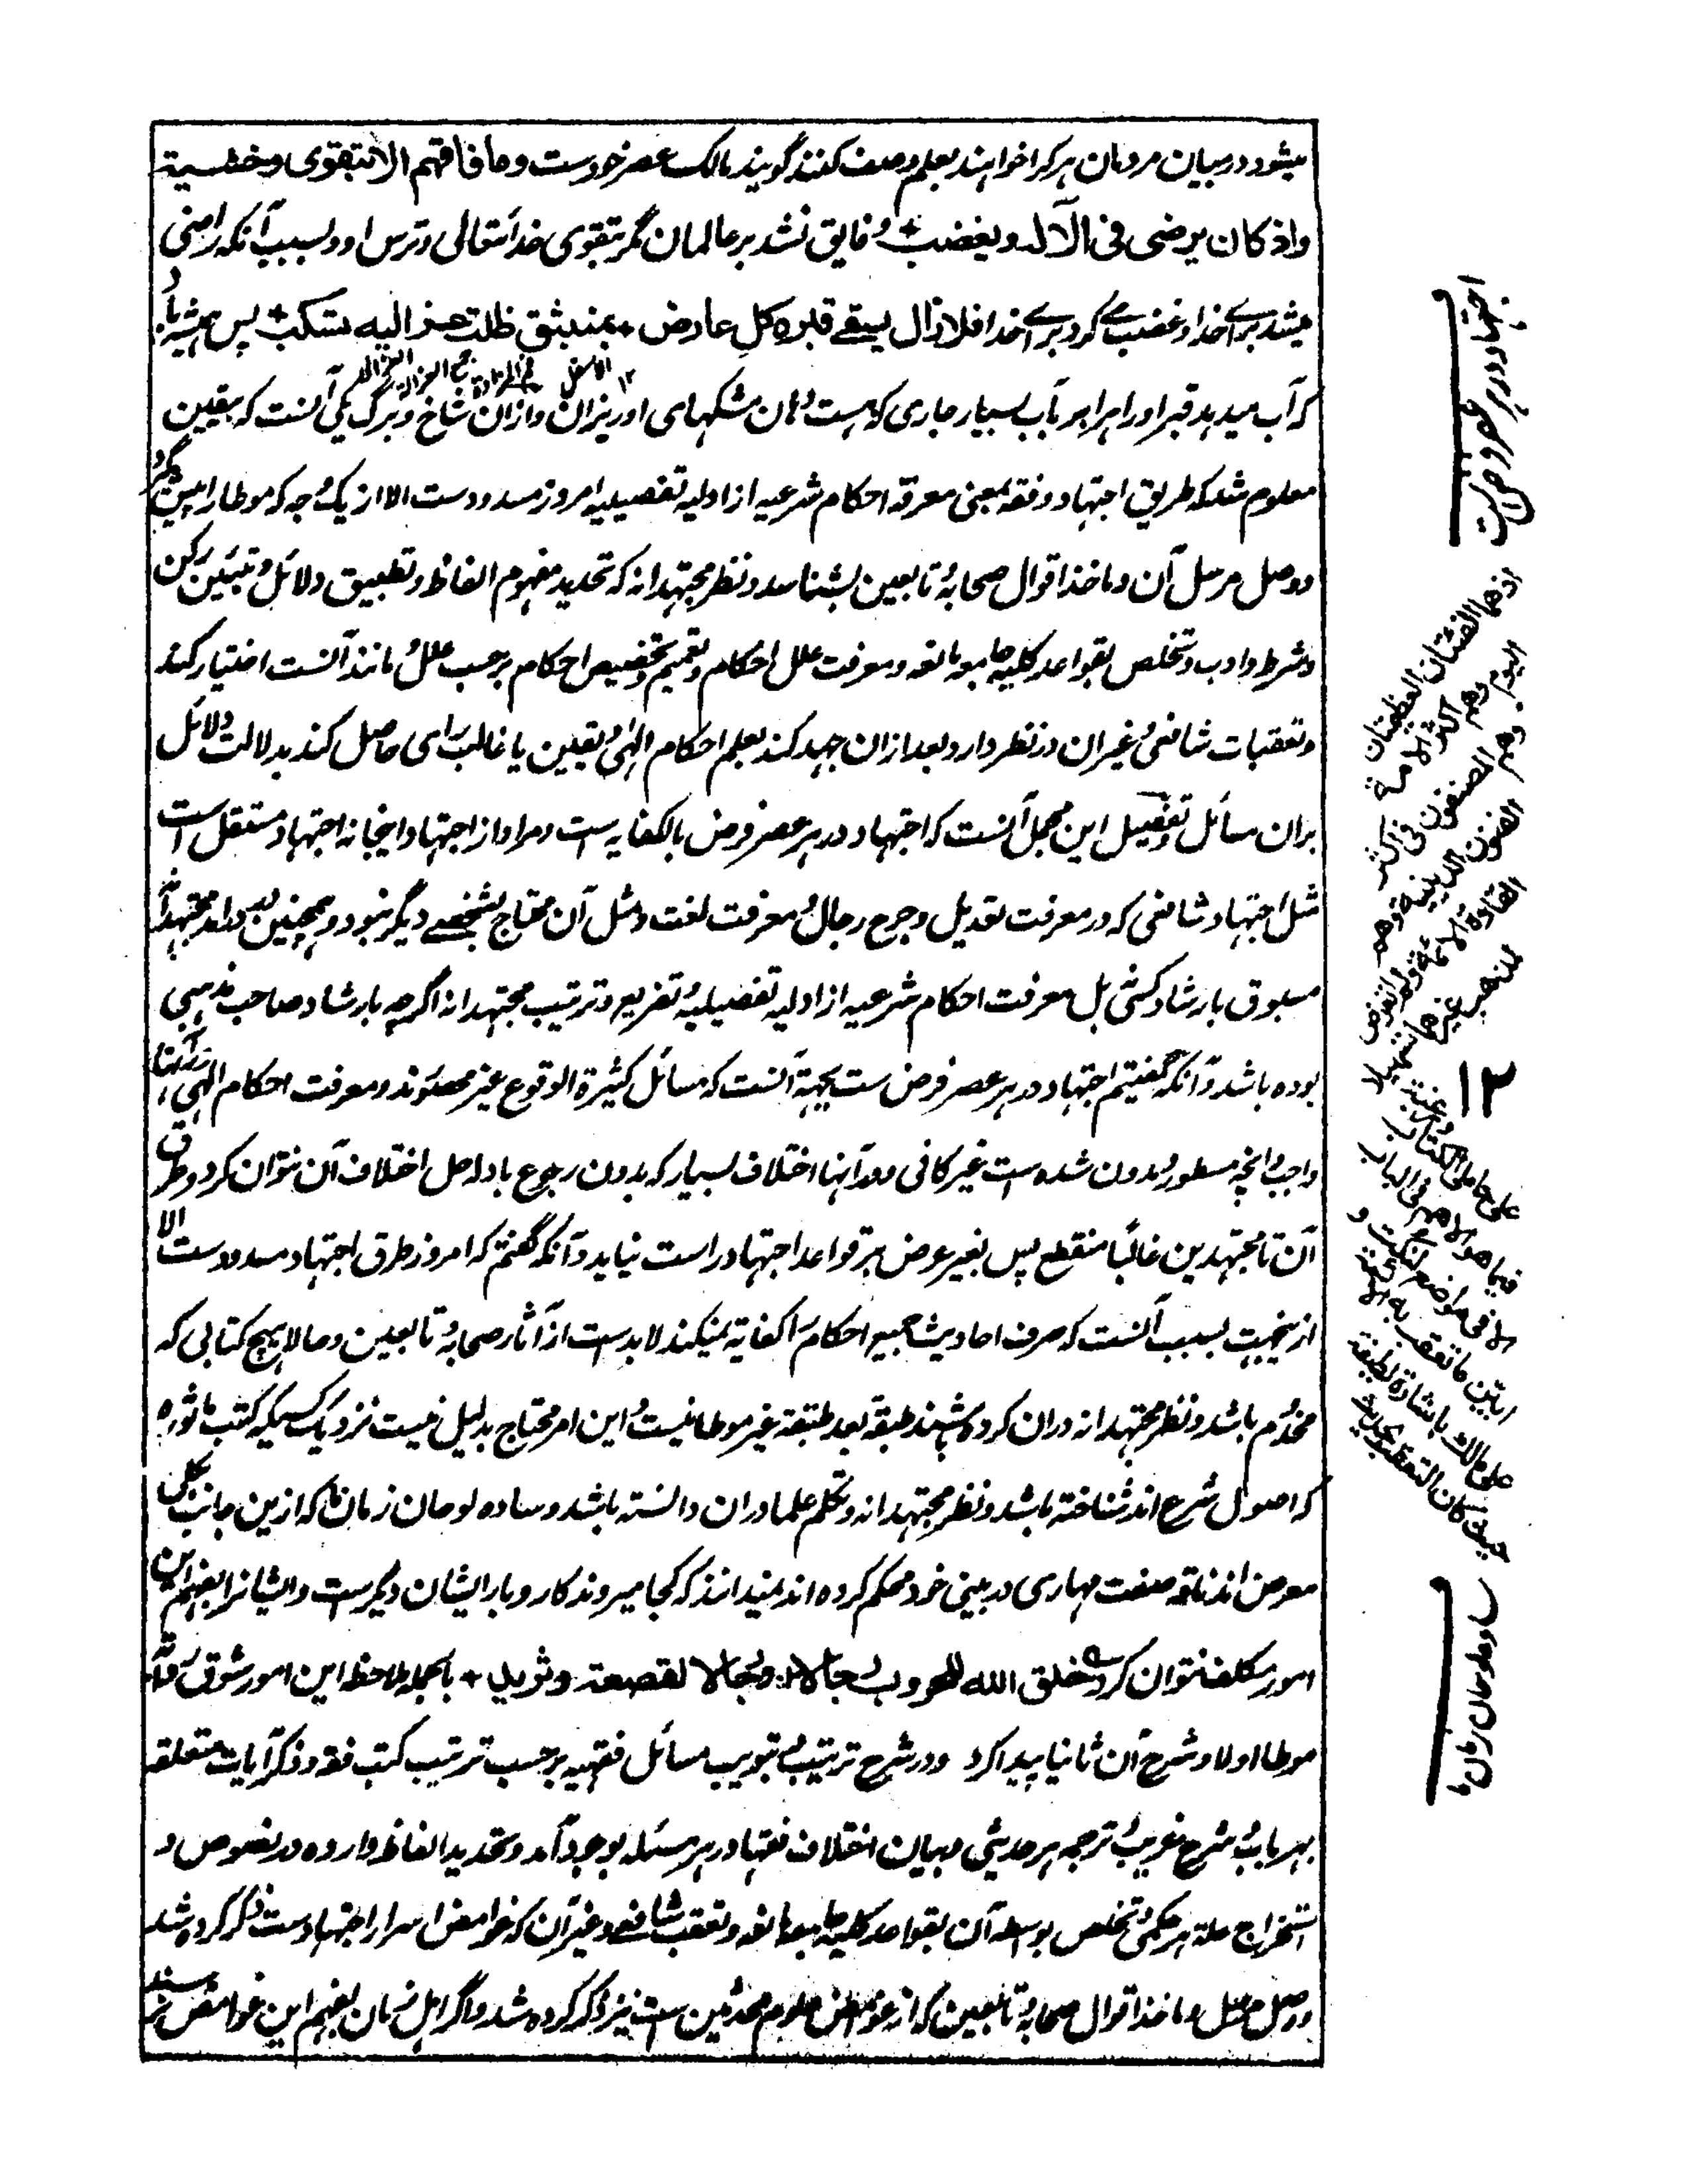 میشود در میان مردمان هر کرا خواهند بعلم وصف کنند گویند مالک عصر خودست وما فاقهم الا بتقوی وخشیة
واذ کان یرضی فی الآله ویغضب + و فایق نشد بر عالمان مگر بتقوی خدایتعالی و ترس او و بسبب آنکه راضی
میشد برای خدا و غضب می کرد برای خدا فلا زال یسقی قبره کل عارض + بمنبثق ظلت عزالیه تسکب + پس همیشه باد
که آب میدهد قبر او را هر ابر بآب بسیار جاری که هست دهان مشکهای او ریزان و ازان شاخ و برگ یکی آنست که بیقین
معلوم شد که طریق اجتهاد و فقه بمعنی معرفة احکام شرعیه از ادلیه تفصیلیه امروز مسدودست الا از یک وجه که موطا را پیش گیرد
و وصل مرسل آن و ماخذ اقوال صحابه و تابعین بشناسد و نظر مجتهدانه که تحدید مفهوم الفاظ و تطبیق دلائل و تبیین رکن
و شرط و ادب و تخلص بقواعد کلیه جامعه مانعه و معرفت علل احکام و تعمیم و تخصیص احکام برحسب علل و مانند آنست اختیار کند
و تعقبات شافعی و غیر آن در نظر دارد و بعد ازان جهد کند بعلم احکام الهی بیقین یا غالب رای حاصل کند بدلالت دلائل
بران مسائل و تفصیل این مجمل آنست که اجتهاد در هر عصر فرض بالکفایه ست و مراد از اجتهاد اینجا نه اجتهاد مستقل است
مثل اجتهاد شافعی که در معرفت تعدیل و جرح رجال و معرفت لغت و مثل آن محتاج بشخصے دیگر نبود و همچنین در
مسبوق بارشاد کسی بل معرفت احکام شرعیه از ادلیه تفصیلیه و تفریع و ترتیب مجتهدانه اگرچه بارشاد صاحب مذهبی
بوده باشد و آنکه گفتیم اجتهاد در هر عصر فرض ست بجهة آنست که مسائل کثیرة الوقوع غیر محصورند و معرفت احکام الهی در آنها
واجب و انچه مسطور و مدون شده ست غیر کافی و در آنها اختلاف بسیار که بدون رجوع بادله حل اختلاف آن نتوان کرد و طرق
آن تا مجتهدین غالبا منقطع پس بغیر عرض بر قواعد اجتهاد راست نیاید و آنکه گفتم که امروز طرق اجتهاد مسدودست الا
ازینجهت بسبب آنست که صرف احادیث جمیع احکام را کفایه نمیکند لابدست از آثار صحابه و تابعین و حالا هیچ کتابی که
مخدوم باشد و نظر مجتهدانه دران کرده باشند طبقة بعد طبقة غیر موطا نیست و این امر محتاج بدلیل نیست نزدیک کسیکه کتب ماثوره
که اصول شرع اند شناخته باشد و نظر مجتهدانه و تکلم علما دران دانسته باشد و ساده لوحان زمان ما که ازین جانب بکلی
معرض اند ناقه صفت مهاری در بینی خود محکم کرده اند نمیدانند که کجا میروند کار و بار ایشان دیگرست و ایشانرا بفهم این
امور مکلف نتوان کرد ع خلق الله للحروب رجالا + ورجالا لقصعة وثرید + بالجمله ملاحظه این امور شوق
موطا اولا و شرح آن ثانیا پیدا کرد و در شرح ترتیب و تبویب مسائل فقهیه برحسب ترتیب کتب فقه و ذکر آیات متعلقه
بهر باب و شرح غریب و ترجمه هر حدیثی و بیان اختلاف فقها در هر مسئله بوجود آمد و تحدید الفاظ وارده در نصوص و
استخراج علة هر حکمی و تخلص بواسطه آن بقواعد کلیه جامعه مانعه و تعقب شافعی و غیر آن که غوامض اسرار اجتهادست ذکر کرده شد
و وصل مرسل و ماخذ اقوال صحابه و تابعین که از غوامض علوم محدثین ست نیز ذکر کرده شد و اگر اهل زمان بفهم این غوامض
اجتهاد در هر عصر فرض ست
اذ هما الفئتان العظیمتان
الیوم وهم اکثر الامة
وهم المصنفون فی اکثر
الفنون الدینیة وهم
القادة الائمة
١٢
ساده لوحان زمان ما